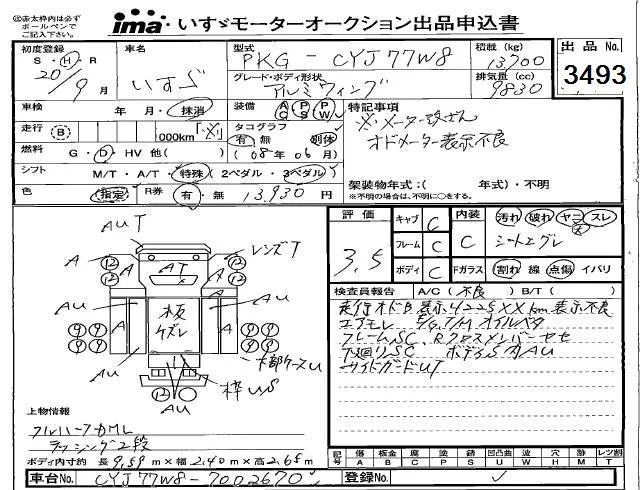 ㊟赤太枠内は必ずボールペンでご記入下さい。
ima いすゞモーターオークション出品申込書
出品 No. 3493
初度登録 S・H・R 20/9月
車名 いすゞ
型式 PKG-CYJ77W8
積載(kg) 13700
グレード・ボディ形状 アルミウィング
排気量(cc) 9830
車検 年 月・抹消
装備 AC PS PW
走行 B 000km
タコグラフ 有・無 別体 (08年06月)
燃料 G・D・HV 他( )
シフト M/T・A/T・特殊(2ペダル・3ペダル)
色 指定 R券 有・無 13,930円
特記事項
※メーター改ざん
オドメーター表示不良
架装物年式:( 年式)・不明
※不明の場合は、不明に○をする。
評価 3.5
キャブ C
フレーム C
ボディ C
内装 C
汚れ 破れ ヤニ スレ
シート エグレ
Fガラス 割れ 線 点傷 イバリ
検査員報告 A/C(不良) B/T( )
走行オドB表示4225XXkm表示不良
エアモレ E/G,T/M オイルベタ
フレームSC、Rクロスメンバーセセ
下廻りSC ボディS内AU
サイドガードUT
AUT
A
レンズT
AT
AU
板ケズレ
木部ケースU
枠US
上物情報
フルハーフDML
ラッシング2段
ボディ内寸約 長9.59m×幅2.40m×高2.65m
記号 傷A 板金B 腐C 凹D 凸凹曲E 油G 波U 水W 穴H 跡M 歪S レツ割T
車台No. CYJ77W8-7002670
登録No.